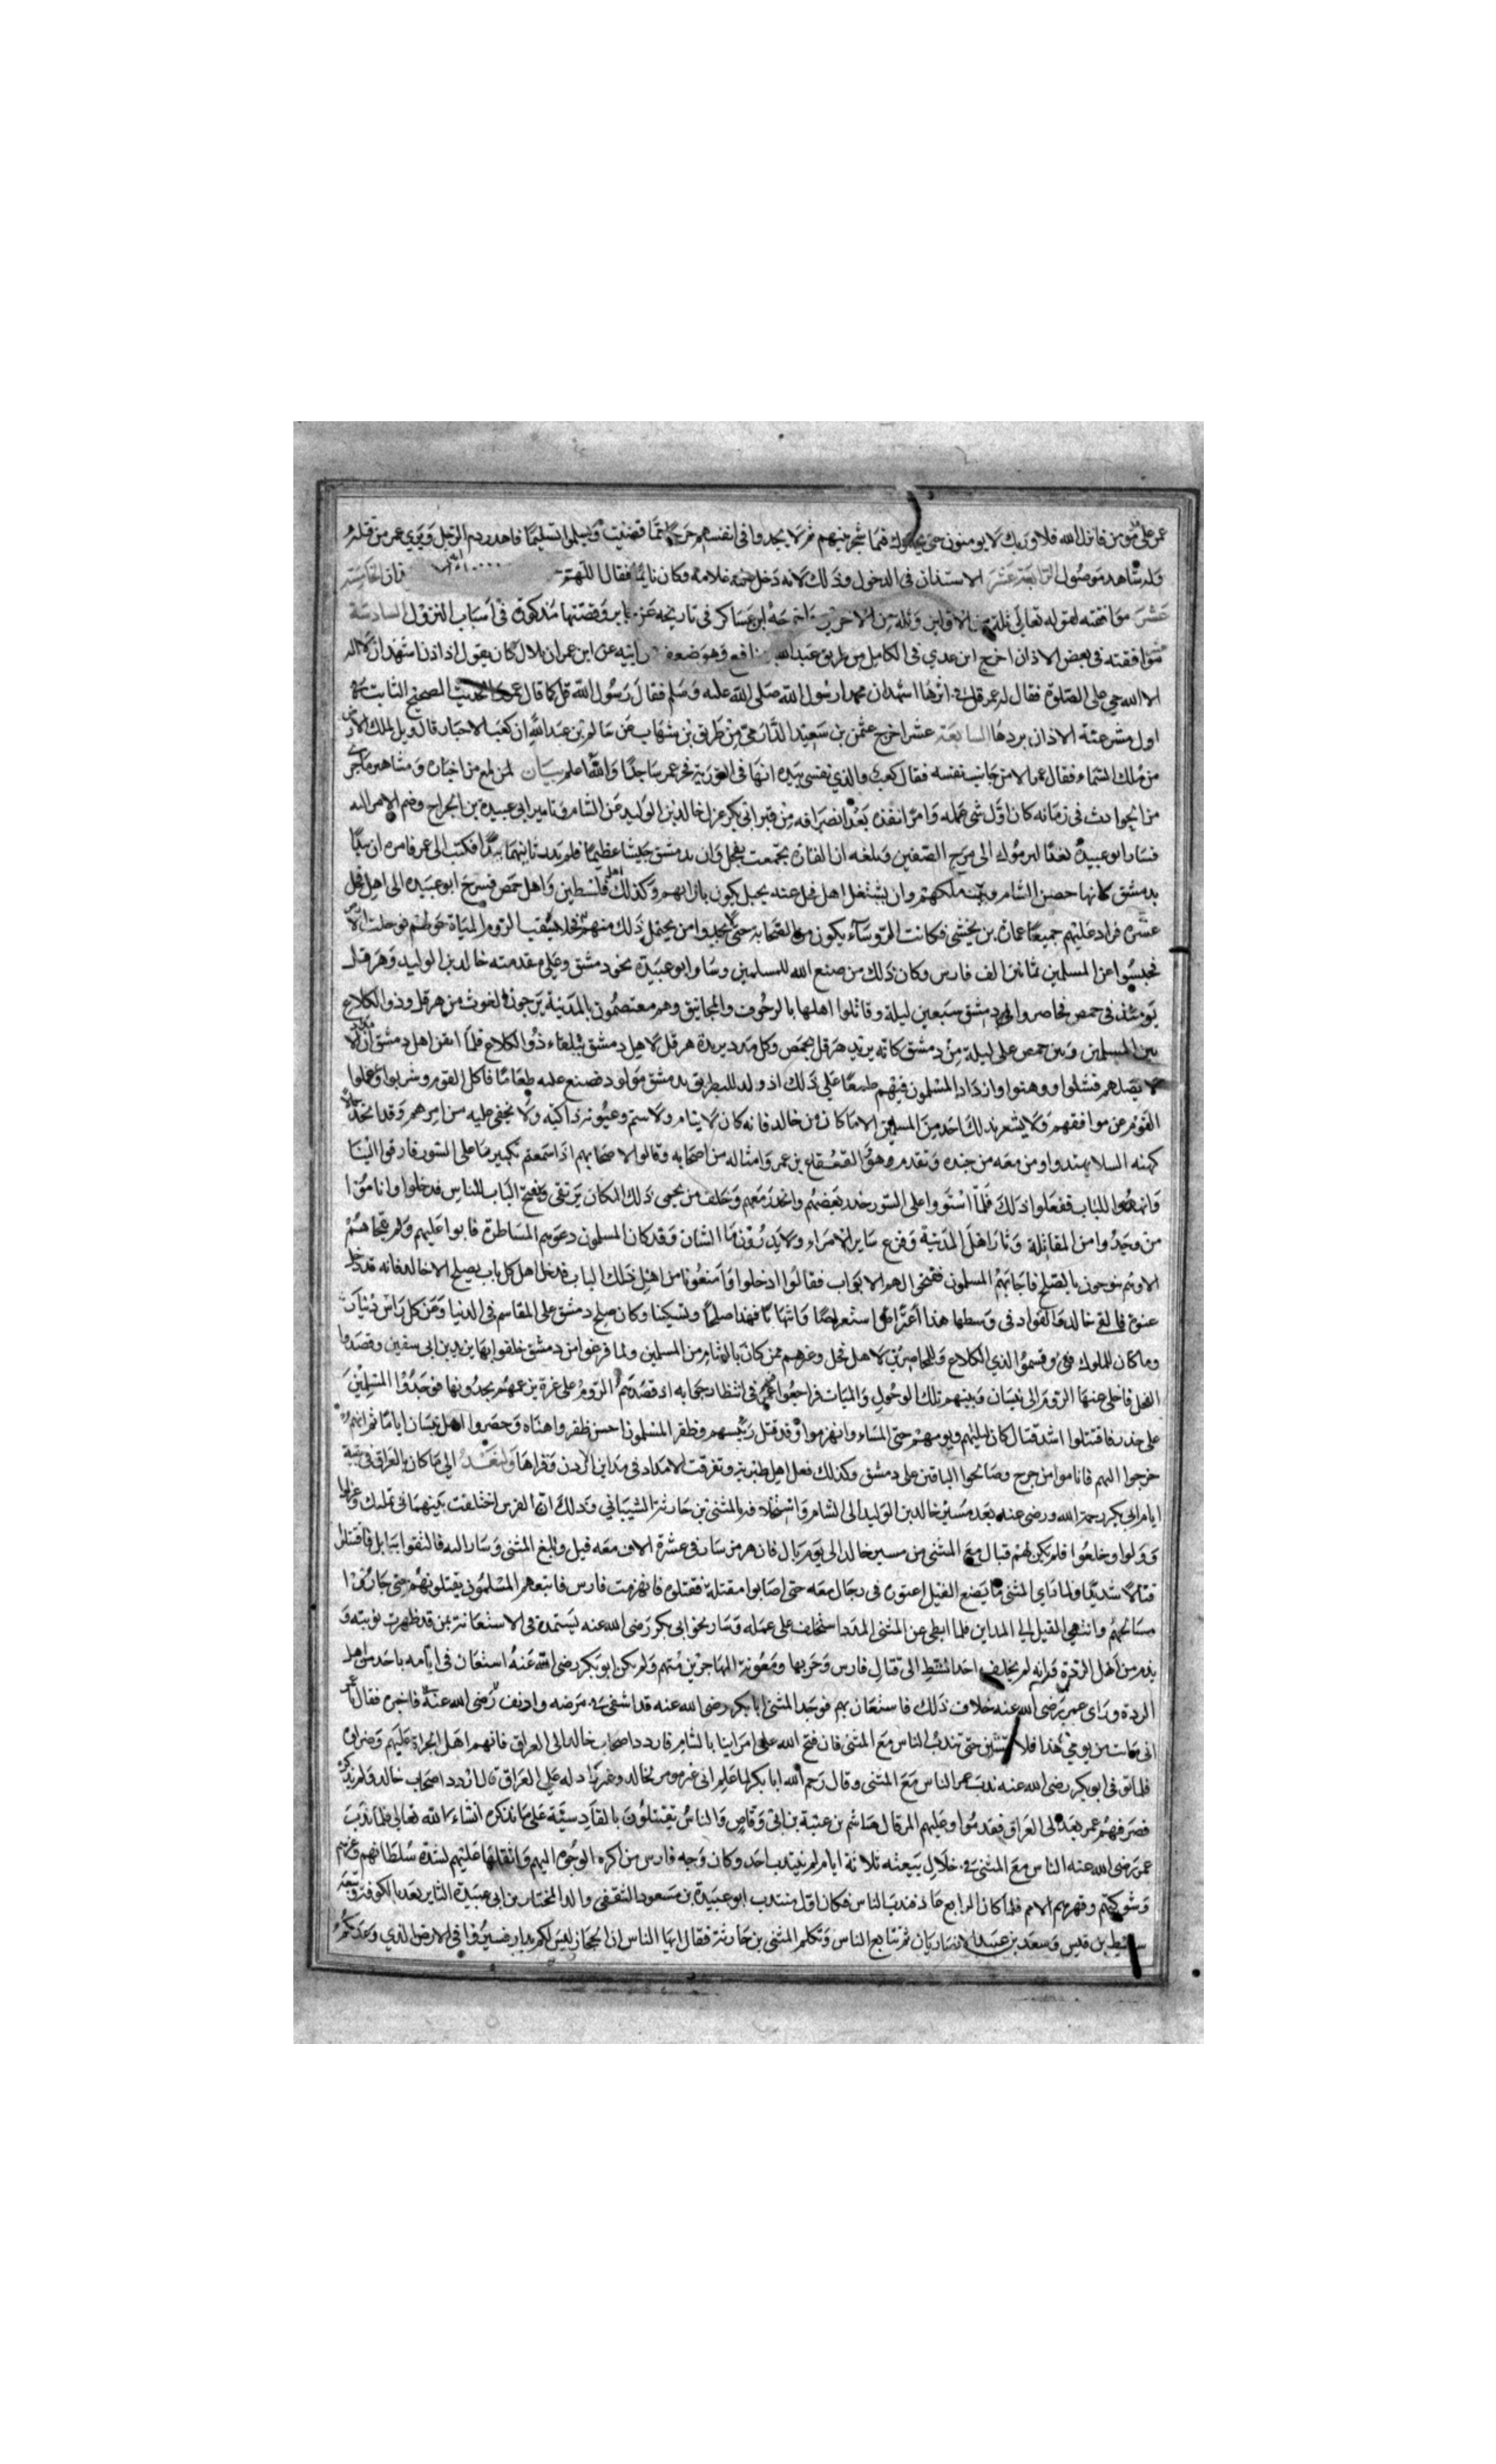 عمر على مؤمن فانزل الله فلا وربك لا يومنون حتى يحكموك فيما شجر بينهم ثم لا يجدوا في انفسهم حرجا مما قضيت ويسلموا تسليما فاهدر دم الرجل وبري عمر من قتله
وله شاهد موصول الرابعة عشر الاستئذان في الدخول وذلك لانه دخل عليه غلامه وكان نائما فقال اللهم
عشر موافقته لقوله تعالى ثلة من الاولين وثلة من الاخرين اخرجه ابن عساكر في تاريخه عن جابر وقصتها مذكورة في اسباب النزول السادسة
موافقته في بعض الاذان اخرج ابن عدي في الكامل من طريق عبد الله نافع وهو ضعيف عن ابيه عن ابن عمر ان بلال كان يقول اذا اذن اشهد ان لا اله
الا الله حي على الصلوة فقال له عمر قل في اثرها اشهد ان محمدا رسول الله صلى الله عليه وسلم فقال رسول الله قل كما قال عمر الحديث الصحيح الثابت في
اول مشرعية الاذان يردها السابعة عشر اخرج عثمن بن سعيد الدارمي من طريق بن شهاب عن سالم بن عبد الله ان كعب الاحبار قال ويل لملك الارض
من ملك السماء فقال عمر الا من حاسب نفسه فقال كعب والذي نفسي بيده انها في التورية فخر عمر ساجدا والله اعلم بيان لمن لمع من اخباره ومشاهير ما جرى
من الحوادث في زمانه كان اول شي عمله وامر انفذه بعد انصرافه من قبر ابي بكر عزل خالد بن الوليد عن الشام وتامير ابي عبيدة بن الجراح وضم الامر اليه
فسار ابو عبيدة بعد اليرموك الى مرج الصفين وبلغه ان الفارة تجمعت بفحل وان بدمشق جيشا عظيما فلم يدر بايهما يبدا فكتب الى عمر فامره ان يبدا
بدمشق فانها حصن الشام وبيت ملكهم وان يشتغل اهل فحل عنه بخيل يكون بازائهم وكذلك اهل فلسطين واهل حمص فسرح ابو عبيدة الى اهل فحل
عشرة قواد عليهم جميعا عمارة بن يخشى فكانت الروساء يكون من الصحابة حتى لا يجدوا من يحتمل ذلك منهم الروم المياة حولهم فوحلت الارض
فحبسوا عن المسلمين ثمانين الف فارس وكان ذلك من صنع الله للمسلمين وسار ابو عبيدة نحو دمشق وعلى مقدمته خالد بن الوليد وهرقل
يومئذ في حمص فحاصروا اهل دمشق سبعين ليلة وقاتلوا اهلها بالزحوف والمجانيق وهم معتصمون بالمدينة يرجون الغوث من هرقل وذو الكلاع
بين المسلمين وبين حمص على ليلة من دمشق كانه يريد هرقل بحمص وكل مدد يريده هرقل لاهل دمشق تلقاه ذو الكلاع فلما ايقن اهل دمشق ان
لا يصلهم فشلوا ووهنوا وازداد المسلمون فيهم طمعا على ذلك اذ ولد للبطريق بدمشق مولود فصنع عليه طعاما فاكل القوم وشربوا وغفلوا
القوم عن موافقهم ولا يشعر بذلك احد من المسلمين الا ما كان من خالد فانه كان لا ينام ولا يستم وعيونه ذاكية ولا يخفى عليه من امرهم وقد اتخذ
كهيئة السلاليم بندوا ومن معه من جنده وتقدم وهو القعقاع بن عمر وامثاله من اصحابه وقالوا لاصحابهم اذا سمعتم تكبيرنا على السور فارقوا الينا
وانهدوا للباب ففعلوا ذلك فلما استووا على السور حدر بعضهم وانحدر معهم وخلف من يحمى ذلك المكان يرتقى وفتح الباب للناس فدخلوا واناموا
من وجدوا من المقاتلة وثار اهل المدينة وفزع ساير الامراء ولا يدرون ما الشان وقد كان المسلمون دعوهم المشاطرة فابوا عليهم ولم يفجاهم
الا وهم يبوحون بالصلح فاجابهم المسلمون ففتحوا لهم الابواب فقالوا ادخلوا وامنعونا من اهل ذلك الباب فدخل اهل كل باب بصلح الا خالد فانه قد دخل
عنوة فالتقى خالد والقواد في وسطها هذا استعراضا وانتهابا فهذا صلحا وتسكينا وكان صلح دمشق على المقاسم في الدنيا وعن كل راس دينار
وما كان للملوك فيئ وقسموا لذي الكلاع وللمحاصرين لاهل فحل وغيرهم ممن كان بالشام من المسلمين ولما فرغوا من دمشق خلفوا بها يزيد بن ابي سفين وقصدوا
الفحل فاخلى عنها الروم الى بيسان وبينهم تلك الوحول والمياه فراجعوا عمر في انتظار جوابه اذ قصدتهم الروم على غرة يزعمهم يجدونها فوجدوا المسلمين
على حذر فاقتتلوا اشد قتال كان ليلتهم ويومهم حتى المساء وانهزموا وقد قتل رئيسهم وظفر المسلمون احسن ظفر واهناه وحصروا اهل بيسان اياما ثم انهم
خرجوا اليهم فاناموا من خرج وصالحوا الباقين على دمشق وكذلك فعل اهل طبرية وتفرقت الامداد في مداين الاردن وقراها ولنعد الى ما كان بالعراق في بقية
ايام ابي بكر رحمة الله ورضى عنه بعد مسير خالد بن الوليد الى الشام واستخلافه بالمثنى بن حارثة الشيباني وذلك ان الفرس اختلفت بينهما في تملك وعزلوا
وولوا وخلعوا فلم يكن لهم قبال مع المثنى من مسير خالد الى يوم ريال فان هرمز سار في عشرة الاف معه فيل وبلغ المثنى وسار اليه فالتقوا ببابل فاقتتلوا
قتالا شديدا ولما راى المثنى ما يصنع الفيل اعتوره في رجال معه حتى اصابوا مقتله فقتلوه فانهزمت فارس فاتبعهم المسلمون يقتلونهم حتى جاوزوا
مسالحهم وانتهى المقيل الى المداين فلما ابطى عن المثنى المدد استخلف على عمله وسار نحو ابي بكر رضى الله عنه يستمده في الاستعانة بمن قد ظهرت توبته و
ندمه من اهل الردة وانه لم يخلف احدا انشط الى قتال فارس وحربها ومعونة المهاجرين منهم ولم يكن ابو بكر رضى الله عنه استعان في ايامه باحد من اهل
الردة وراى عمر رضى الله عنه خلاف ذلك فاستعان بهم فوجد المثنى ابا بكر رضى الله عنه قد اشفى في مرضه وادنف رضى الله عنه فاخبره فقال يا عمر
انى مات من يومي هذا فلا تمسين حتى تندب الناس مع المثنى فان فتح الله على امراينا بالشام فاردد اصحاب خالد الى العراق فانهم اهل الجراة عليهم وضراوة
فلما توفى ابو بكر رضى الله عنه ندب عمر الناس مع المثنى وقال رحم الله ابا بكر لما علم انى غير مومر لخالد وغير راد له على العراق قال اردد اصحاب خالد ولم يذكره
فصرفهم عمر بعده الى العراق فقدموا وعليهم المرقال هاشم بن عتبة بن ابي وقاص والناس يقتتلون بالقادسية على ما نذكره انشاء الله تعالى فلما ندب
عمر رضى الله عنه الناس مع المثنى في خلال بيعته ثلاثة ايام لم ينتدب احد وكان وجه فارس من اكره الوجوه اليهم واثقلها عليهم لشدة سلطانهم وعزهم
وشوكتهم وقهرهم الامم فلما كان الرابع عاد فندب الناس فكان اول منتدب ابو عبيدة بن مسعود الثقفى والد المختار بن ابي عبيدة الثاير بعد بالكوفة وتبعه
سليط بن قيس وسعد بن عبيد الانصاريان ثم تتابع الناس وتكلم المثنى بن حارثة فقال ايها الناس ان الحجاز ليس لكم بدار فسيروا في الارض الذي وعدكم